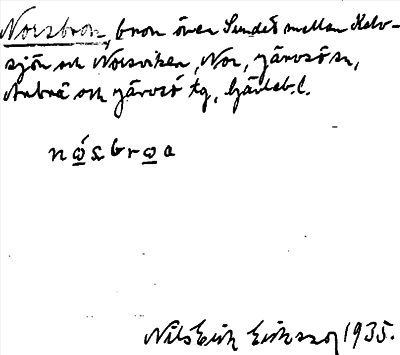 Norsbron, bron över Sundet mellan Kalv-
sjön och Norsviken, Nor, Järvsö sn,
Arbrå och Järvsö tg, Gävleb. l.
Nils Erik Eriksson 1935.